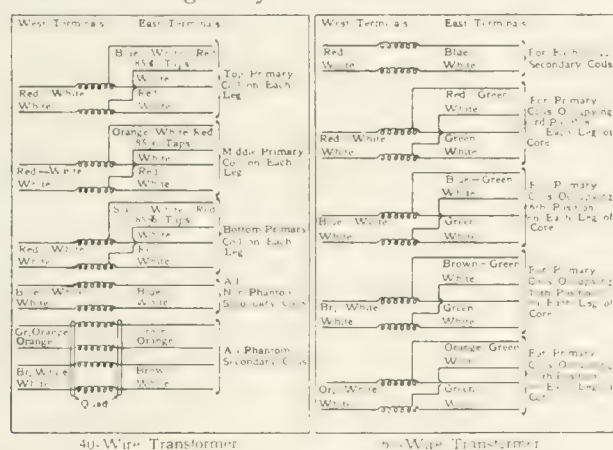 West Terminals East Terminals
Blue White Red
85% Taps
White
Red White Red
White White
Top Primary
Coil on Each
Leg
Orange White Red
85% Taps
White
Red—White Red
White White
Middle Primary
Coil on Each
Leg
White Red
85% Taps
White
Red White
White White
Bottom Primary
Coil on Each
Leg
Blue White Blue
White White
All
Non Phantom
Secondary Coils
Gr. Orange
Orange Orange
Br. White Brown
White White
All Phantom
Secondary Coils
Quad
40-Wire Transformer
West Terminals East Terminals
Red Blue
White White
For Each
Secondary Coils
Red Green
White
Red White Green
White White
For Primary
Coils Occupying
3rd Position
Each Leg of
Core
Blue-Green
White
Blue White Green
White White
For Primary
Coils Occupying
Position
on Each Leg of
Core
Brown-Green
White
Br. White Green
White White
For Primary
Coils Occupying
Position
on Each Leg of
Core
Orange Green
White
Or. White Green
White
For Primary
Coils Occupying
Position
Each Leg of
Core
Wire Transformer